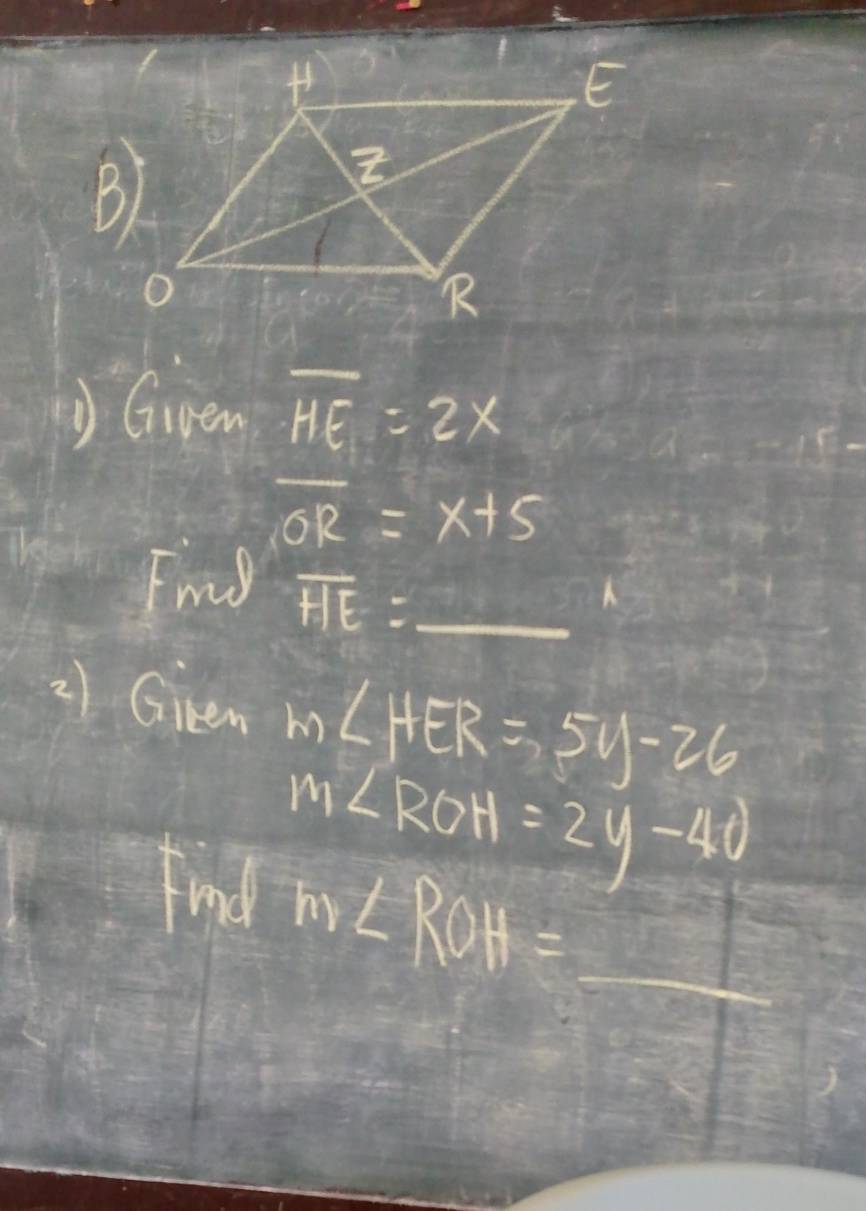 H E
B) Z
O R
1) Given HE = 2x
OR = x+5
Find HE = ____
2) Given m∠HER = 5y-26
m∠ROH = 2y-40
Find m∠ROH = ____